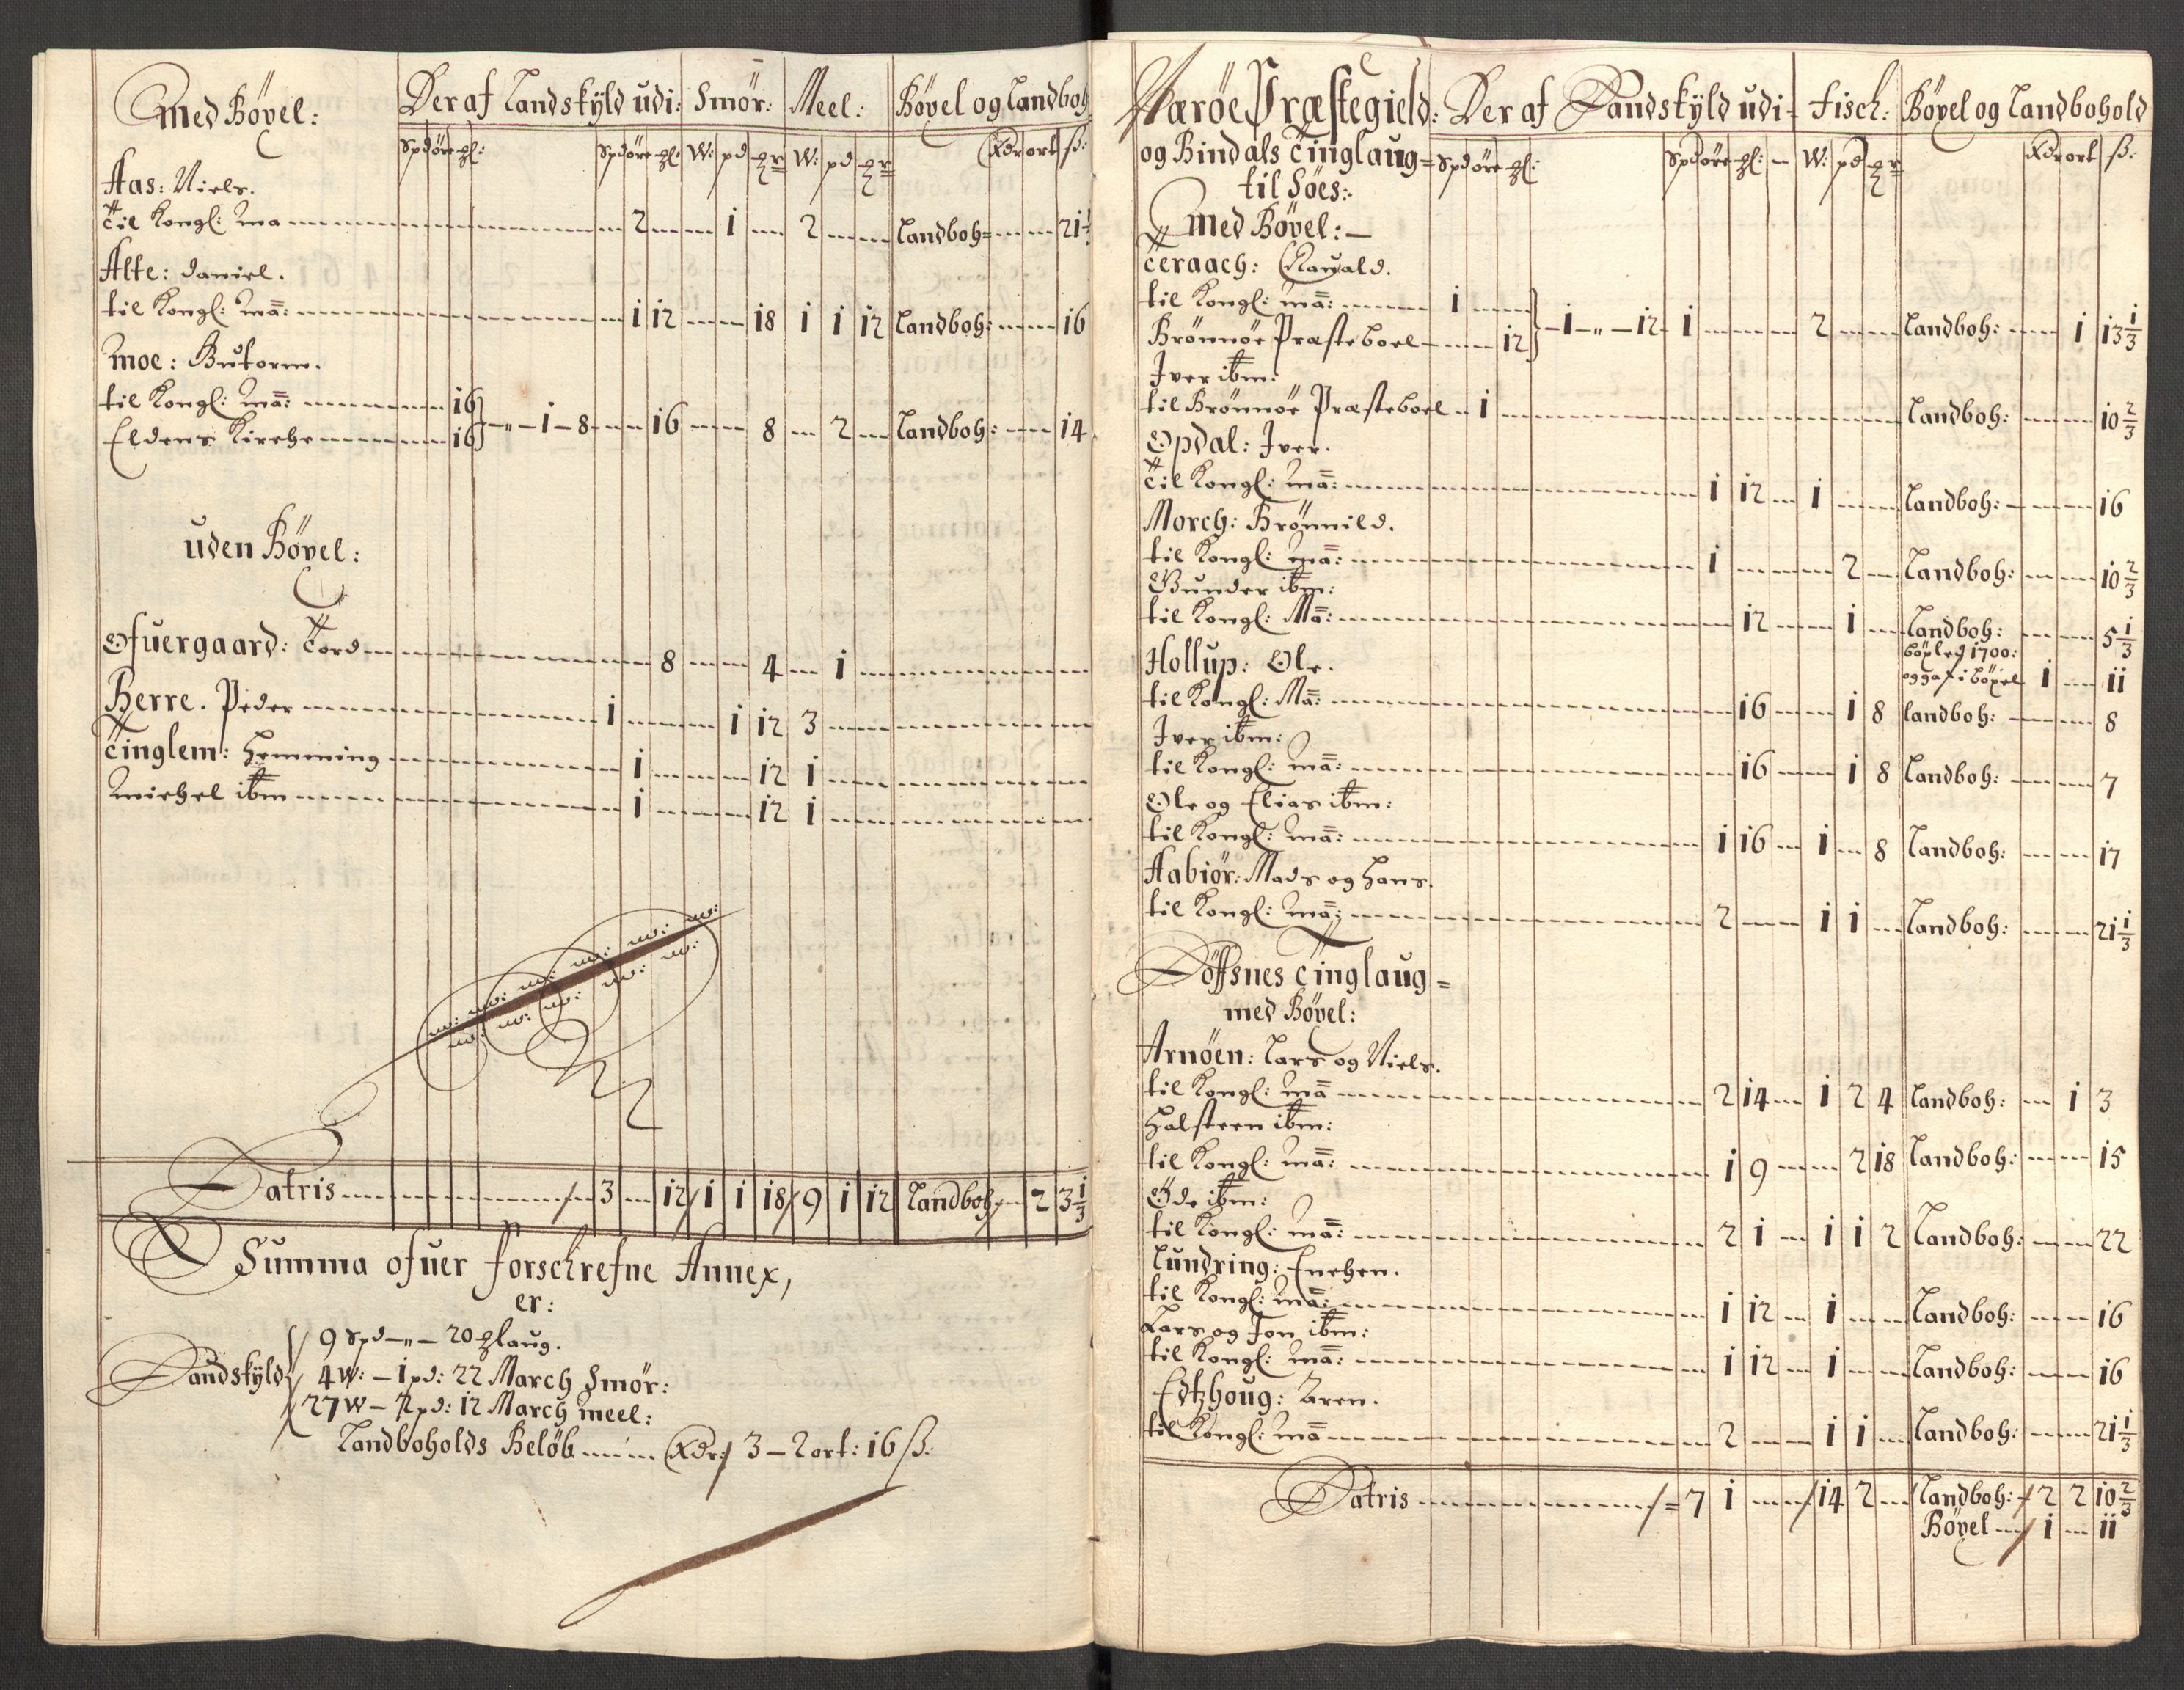 Med Böxel: Der af Landskÿld udi: Smör: Meel: Böxel og Landboh
Spd öre ql: Spd öre ql: W: pd W: pd Rdr ort ß:
Aas: Niels.
til Kongl: Ma 2 1 2 Landboh= 21
Alte: Daniel.
til Kongl: Ma: 1 12 18 1 1 12 Landboh: 16
Moe: Butorm.
til Kongl: Ma: 16
Eldens Kirche 16 – „ – 1 – 8 16 8 2 Landboh: 14
uden Böxel:
Ofuergaard: Tord 8 4 1
Berre. Peder 1 1 12 3
Tinglem: Hemming 1 12 1
Michel ibm 1 12 1
Latris 3 12 / 1 1 18 / 9 1 12 Landboh 2 3 1/3
Summa ofuer forschrefne Annex,
er:
9 Spd – „ – 20 qlaug.
Landskÿld 4 W: – 1 pd: 22 March Smör:
27 W – 2 pd: 12 March meel:
Landboholds Belöb Rdr 3 – 2 ort: 16 ß:
Næröe Præstegield: Der af Landskÿld udi – fisch: Böxel og Landbohold
og Bindals Tinglaug= Spd öre ql: Spd öre ql: W: pd Rdr ort ß:
til Söes:
Med Böxel: –
Teraach: Rauald.
til Kongl: Ma: 1
Brönnöe Præsteboel 12 – 1 – „ – 12 1 2 Landboh: 1 13 1/3
Iver ibm:
til Brönnöe Præsteboel 1 Landboh: 10 2/3
Opdal: Iver.
til Kongl: Ma: 1 12 1 Landboh: 16
Morch: Brönnild.
til Kongl: Ma: 1 2 Landboh: 10 2/3
Gunder ibm:
til Kongl: Ma: 12 1 Landboh: 5 1/3
böxled 1700:
Hollup: Ole. og gaf i böxel 1 11
til Kongl: Ma: 16 1 8 Landboh: 8
Iver ibm:
til Kongl: Ma: 16 1 8 Landboh: 7
Ole og Elias ibm:
til Kongl: Ma: 1 16 1 8 Landboh: 17
Aabiör: Mads og Hans.
til Kongl: Ma: 2 1 1 Landboh: 21 1/3
Föffsnes Tinglaug=
med Böxel:
Arnöen: Lars og Niels.
til Kongl: Ma 2 14 1 2 4 Landboh: 1 3
Halsteen ibm:
til Kongl: Ma: 1 9 2 18 Landboh: 15
Ode ibm:
til Kongl: Ma: 2 1 1 1 2 Landboh: 22
Lundring: Enchen.
til Kongl: Ma: 1 12 1 Landboh: 16
Lars og Jon ibm:
til Kongl: Ma: 1 12 1 Landboh: 16
Edtzhoug: Aren.
til Kongl: Ma 2 1 1 Landboh: 21 1/3
Latris /= 7 1 / 14 2 Landboh: 2 2 10 2/3
Böxel 1 11